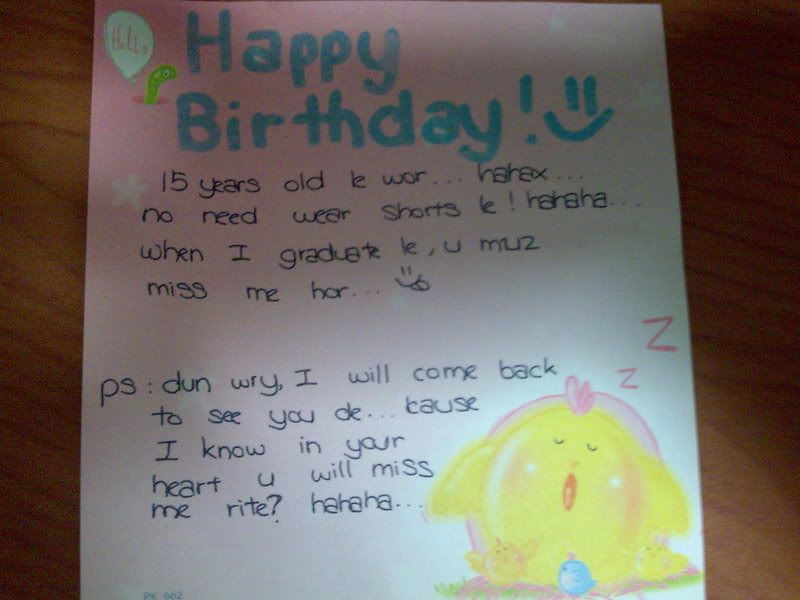 Hello
Happy
Birthday!
15 years old le wor... hahax...
no need wear shorts le! hahaha...
when I graduate le, u muz
miss me hor...
Z
Z
ps: dun wry, I will come back
to see you de... cause
I know in your
heart u will miss
me rite? hahaha...
PK 662